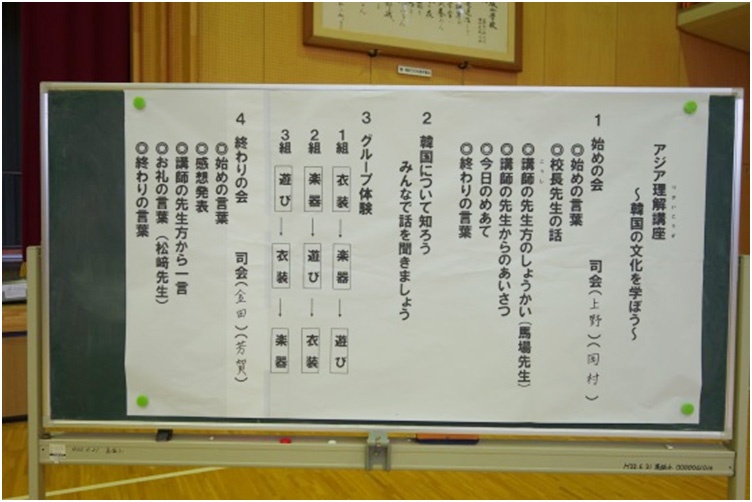 アジア理解講座
りかいこうざ
～韓国の文化を学ぼう～
1 始めの会 司会(上野)(岡村)
◎始めの言葉
◎校長先生の話
◎講師の先生方のしょうかい(馬場先生)
こうし
◎講師の先生からのあいさつ
◎今日のめあて
◎終わりの言葉
2 韓国について知ろう
みんなで話を聞きましょう
3 グループ体験
1組 衣装 → 楽器 → 遊び
2組 楽器 → 遊び → 衣装
3組 遊び → 衣装 → 楽器
4 終わりの会 司会(金田)(芳賀)
◎始めの言葉
◎感想発表
◎講師の先生方から一言
◎お礼の言葉(松﨑先生)
◎終わりの言葉